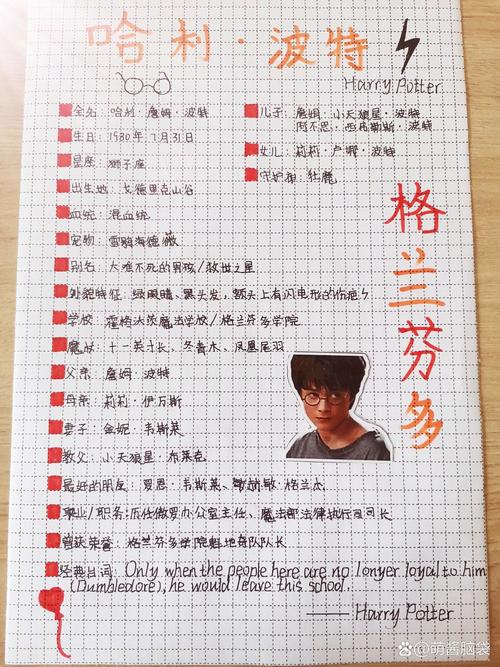 哈利·波特
Harry Potter
全名：哈利·詹姆·波特
生日：1980年7月31日
星座：狮子座
出生地：戈德里克山谷
血统：混血统
宠物：雪鸮海德薇
别名：大难不死的男孩/救世之星
外貌特征：绿眼睛、黑头发，额头上有闪电形的伤疤
学校：霍格沃茨魔法学校/格兰芬多学院
魔杖：十一英寸长、冬青木、凤凰尾羽
父亲：詹姆·波特
母亲：莉莉·伊万斯
妻子：金妮·韦斯莱
教父：小天狼星·布莱克
最好的朋友：罗恩·韦斯莱、赫敏·格兰杰
职业/职务：派任傲罗办公室主任、魔法部法律执行司司长
曾获荣誉：格兰芬多学院魁地奇队队长
经典台词：Only when the people here are no longer loyal to him
(Dumbledore), he would leave this school.
—— Harry Potter
儿子：詹姆·小天狼星·波特
阿不思·西弗勒斯·波特
女儿：莉莉·卢娜·波特
守护神：牡鹿
格兰芬多
百家号@萌酱脑袋